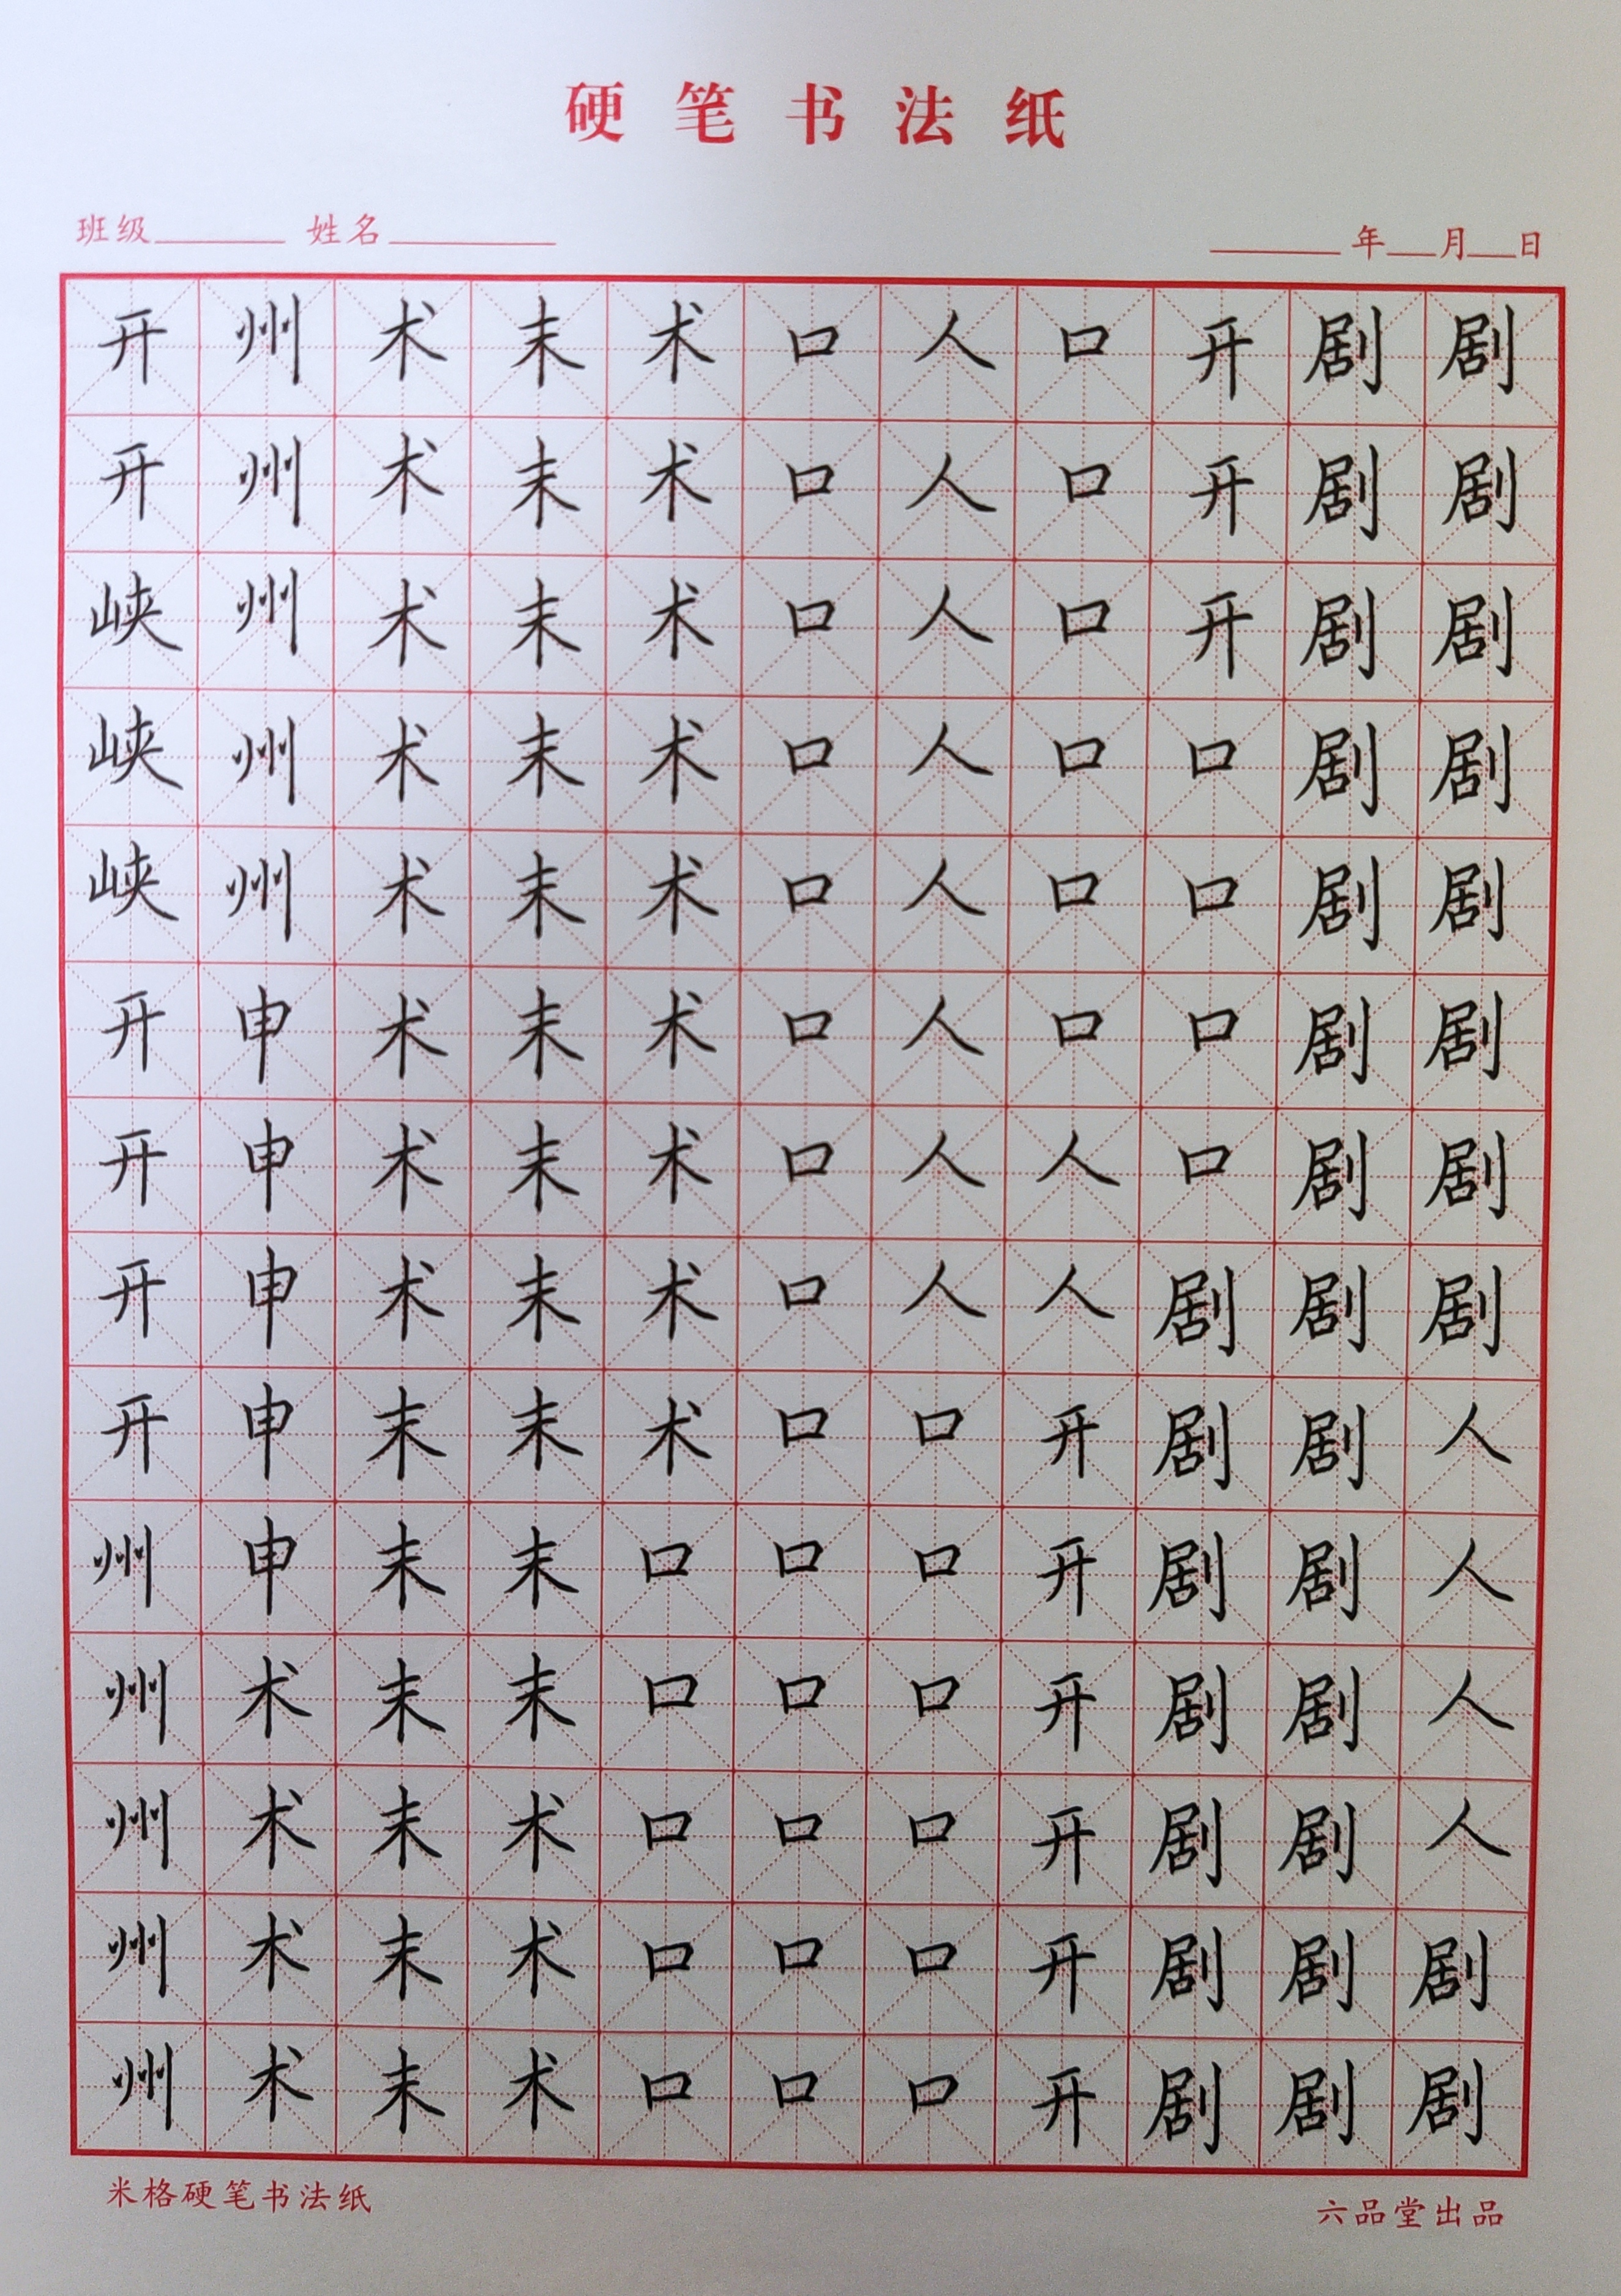 硬笔书法纸
班级 姓名 年 月 日
开 州 术 末 术 口 人 口 开 剧 剧
开 州 术 末 术 口 人 口 开 剧 剧
峡 州 术 末 术 口 人 口 开 剧 剧
峡 州 术 末 术 口 人 口 口 剧 剧
峡 州 术 末 术 口 人 口 口 剧 剧
开 申 术 末 术 口 人 口 口 剧 剧
开 申 术 末 术 口 人 人 口 剧 剧
开 申 术 末 术 口 人 人 剧 剧 剧
开 申 末 末 术 口 口 开 剧 剧 人
州 申 末 末 口 口 口 开 剧 剧 人
州 术 末 末 口 口 口 开 剧 剧 人
州 术 末 术 口 口 口 开 剧 剧 人
州 术 末 术 口 口 口 开 剧 剧 剧
州 术 末 术 口 口 口 开 剧 剧 剧
米格硬笔书法纸 六品堂出品